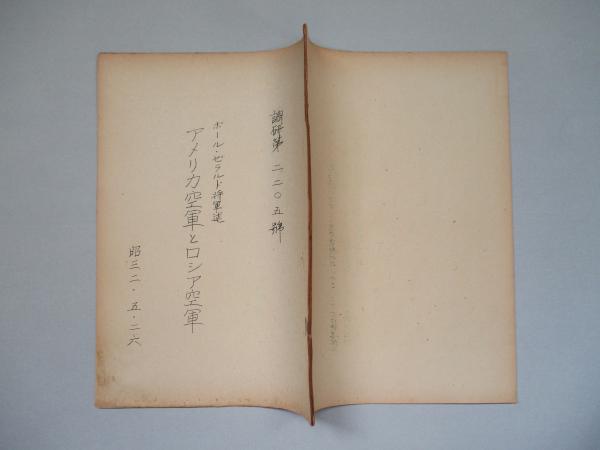 調研第 二、二〇五號
ポール・ゼラルド将軍述
アメリカ空軍とロシア空軍
昭三二・五・二六